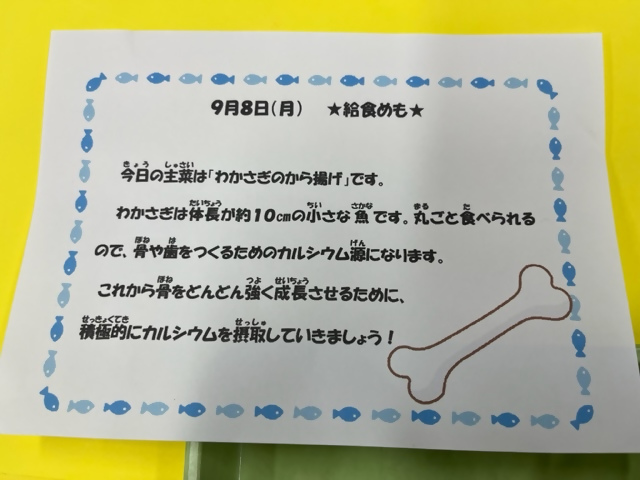 9月8日(月)　★給食めも★
今日の主菜は「わかさぎのから揚げ」です。
わかさぎは体長が約10㎝の小さな魚です。丸ごと食べられる
ので、骨や歯をつくるためのカルシウム源になります。
これから骨をどんどん強く成長させるために、
積極的にカルシウムを摂取していきましょう！